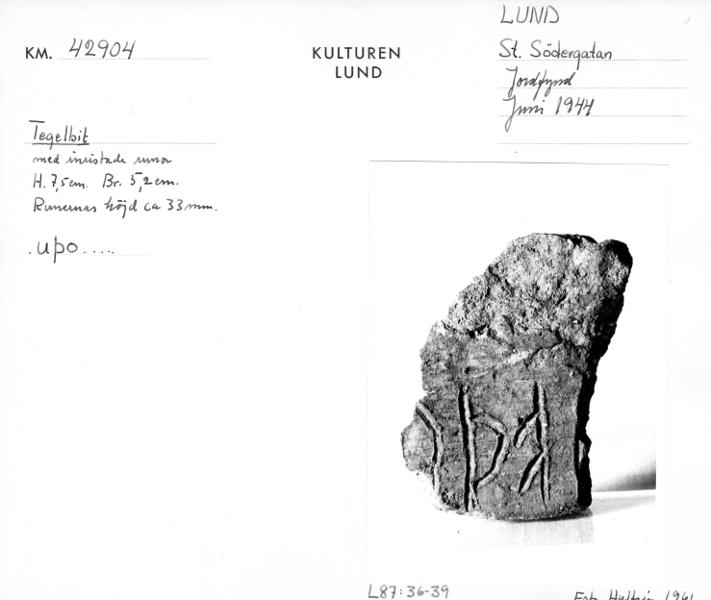 KM. 42904
KULTUREN
LUND
LUND
St. Södergatan
Jordfynd
Juni 1944
Tegelbit
med inristade runor
H. 7,5 cm. Br. 5,2 cm.
Runernas höjd ca 33 mm.
.uþo.....
L87:36-39